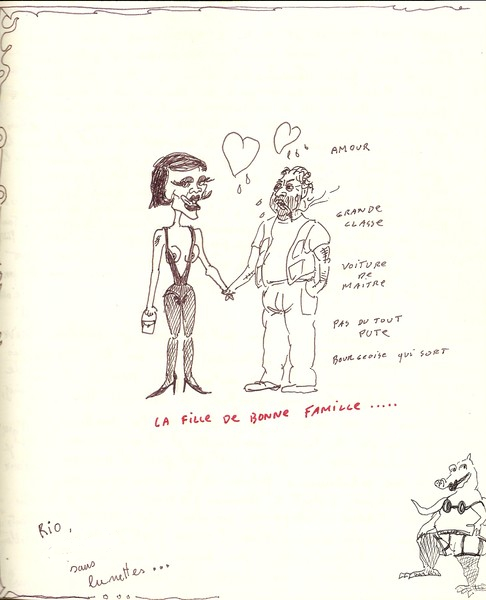 AMOUR
GRANDE
CLASSE
VOITURE
DE
MAITRE
PAS DU TOUT
PUTE
BOURGEOISE qui SORT
LA FILLE DE BONNE FAMILLE .....
RIO,
sans
lunettes ...